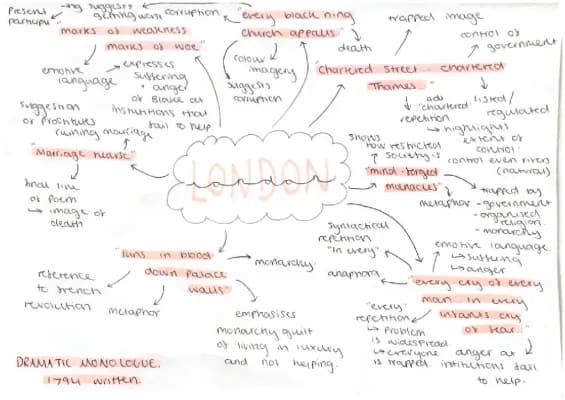 Present
participle
-ing suggests
getting worse
corruption
"every black ning
church appalls"
death
colour
imagery
suggests
corruption
trapped image
control of
government
"Chartered Street - chartered
Thames"
adj
"chartered"
repetition
listed/
regulated
highlights
extent of
control
control even rivers
(natural)
marks of weakness
marks of woe"
emotive
language
expresses
suffering
+ anger
of Blake at
institutions that
fail to help
suggestion
of prostitutes
ruining marriage
"Marriage hearse"
final line
of poem
→ image of
death
LONDON
shows
how restricted
society is
"mind-forged
manacles"
metaphor
trapped by
- government
- organised
religion
- monarchy
"runs in blood
down palace
walls"
monarchy
reference
to french
revolution
metaphor
emphasises
monarchy guilt
of living in luxury
and not helping.
syntactical
repetition
"In every"
anaphora
emotive language
↳ suffering
↳ anger
"every cry of every
man in every
infants cry
of fear"
"every"
repetition
↳ problem
is widespread
↳ everyone
is trapped.
anger at
institutions fail
to help.
DRAMATIC MONOLOGUE.
1794 written.